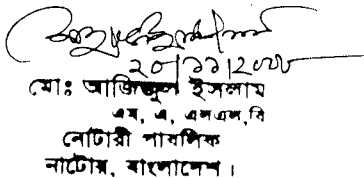 ২০/১১/২০০০
মোঃ আজিজুল ইসলাম
এম, এ, এলএল,বি
নোটারী পাবলিক
নাটোর, বাংলাদেশ।